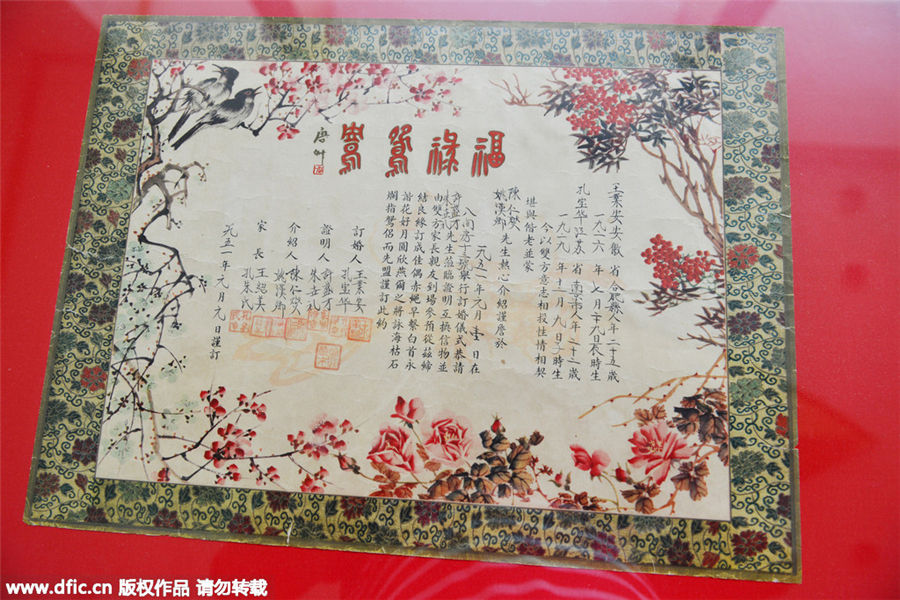 福祿鴛鴦
王業安安徽省合肥縣人年二十五歲
一九二六年七月二十九日辰時生
孔宝华江苏省南京市人年二十二歲
一九二九年十一月九日子時生
今以雙方意志相投性情相契
堪與偕老並蒙
陳仁燮
姚漢卿先生熱心介紹謹詹於
一九五一年元月壹日在
八府房十三號舉行訂婚儀式恭請
先生蒞臨證明互換信物並
由雙方家長親友到場參預從茲締
結良緣訂成佳偶赤繩早繫白首永
諧花好月圓欣燕爾之將詠海枯石
爛指鴛侶而先盟謹訂此約
訂婚人 王業安
孔宝华
證明人 許盛才
介紹人 陳仁燮
姚漢卿
家長 王紹美
孔朱氏
一九五一年元月元日謹訂
www.dfic.cn 版权作品 请勿转载